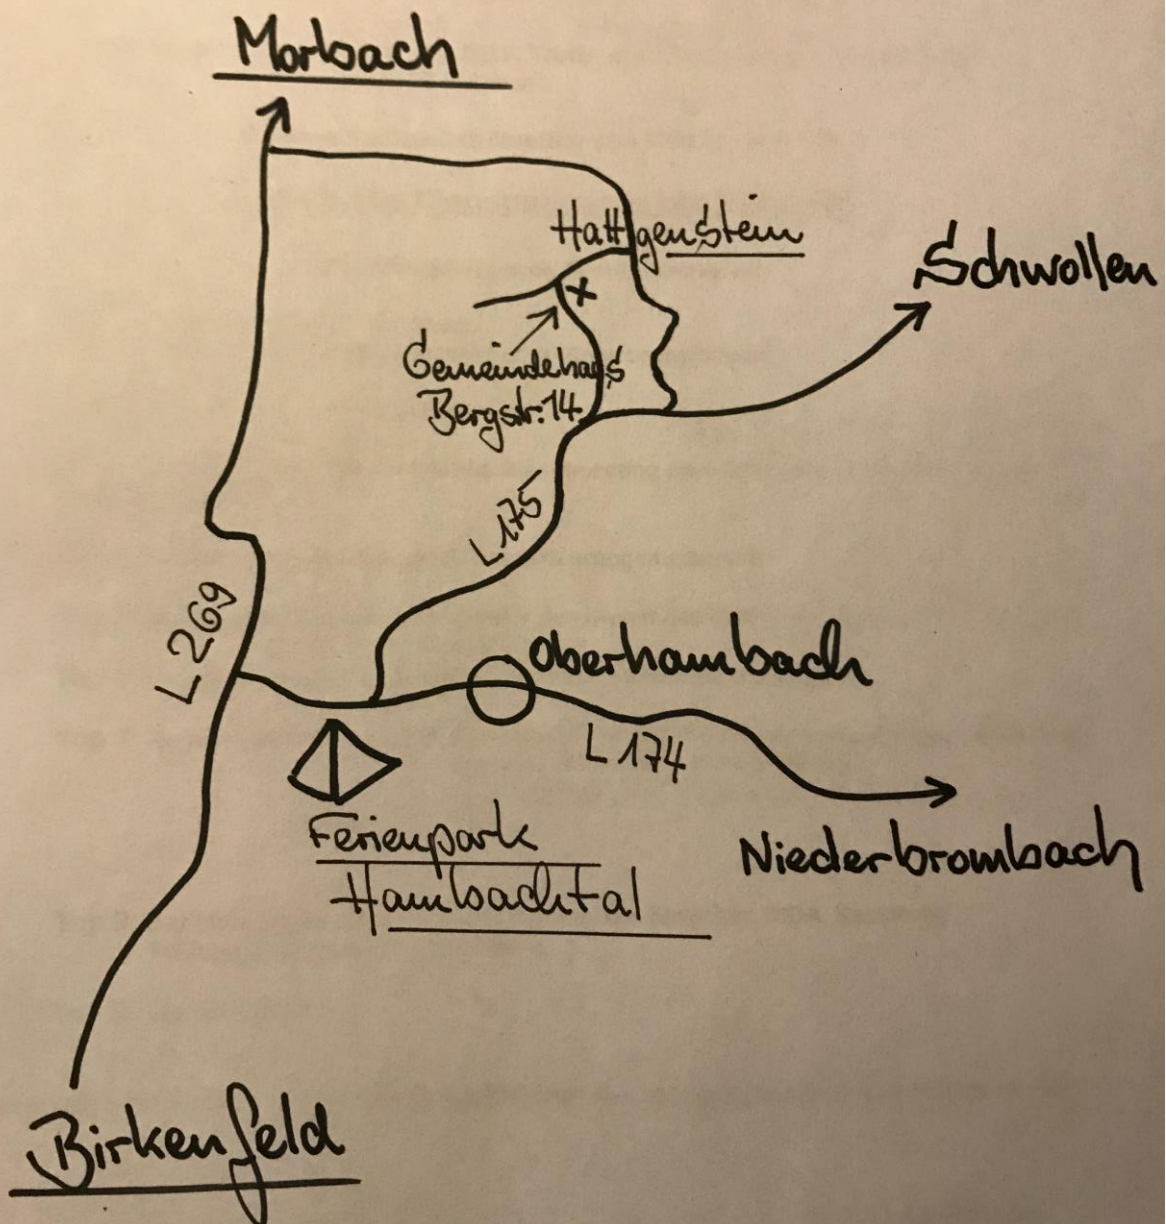 Morbach
Hattgenstein
Schwollen
Gemeindehaus
Bergstr. 14
L 175
L 269
Oberhambach
L 174
Ferienpark
Hambachtal
Niederbrombach
Birkenfeld